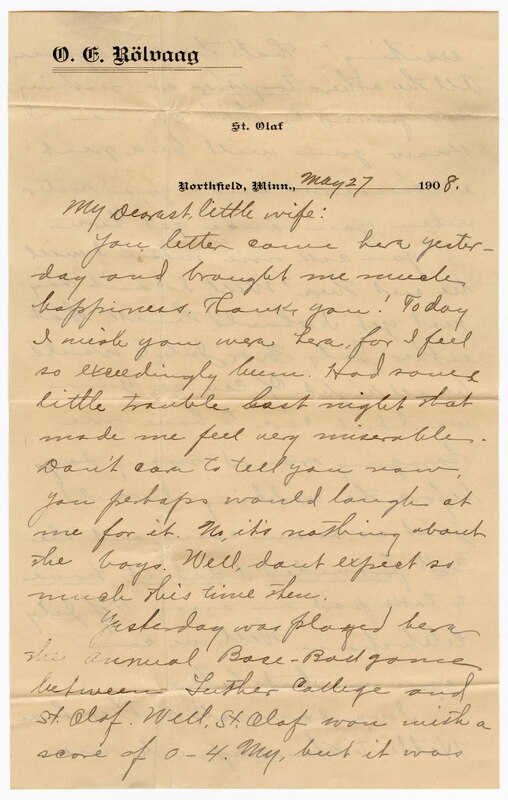 O. E. Rölvaag
St. Olaf
Northfield, Minn., May 27 1908.
My Dearest little wife:
You letter came here yester-
day and brought me much
happiness. Thank you! Today
I wish you were here, for I feel
so exceedingly bum. Had some
little trouble last night that
made me feel very miserable.
Don't care to tell you now,
you perhaps would laugh at
me for it. No, it's nothing about
the boys. Well, don't expect so
much this time then.
Yesterday was played here
the annual Base-Ball game
between Luther College and
St. Olaf. Well, St. Olaf won with a
score of 0-4. My, but it was